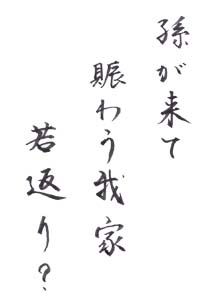 孫が来て
賑わう我家
若返り?